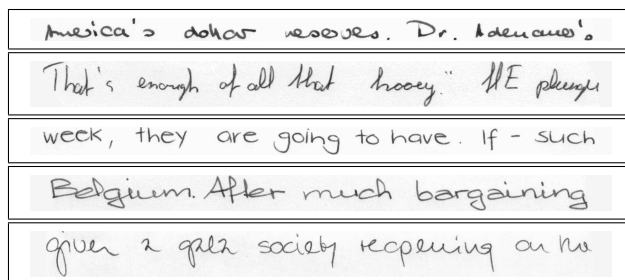 America's dollar reserves. Dr. Adenauer's
That's enough of all that hooey." HE plunge
week, they are going to have. If - such
Belgium. After much bargaining
given a gala society reopening on the